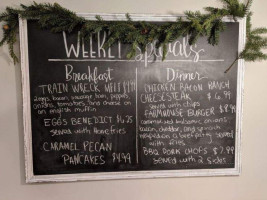 Weekly Specials
Breakfast
TRAIN WRECK MELT
2 eggs, bacon, sausage, ham, peppers,
onions, tomatoes, and cheese on
an english muffin
EGGS BENEDICT
served with homefries
CARAMEL PECAN
PANCAKES $4.99
Dinner
CHICKEN BACON RANCH
CHEESESTEAK $6.99
served with chips
FARMHOUSE BURGER $8.99
caramelized balsamic onions,
bacon, cheddar, and spinach
on a beef patty served
with fries
BBQ PORK CHOPS $7.99
served with 2 sides